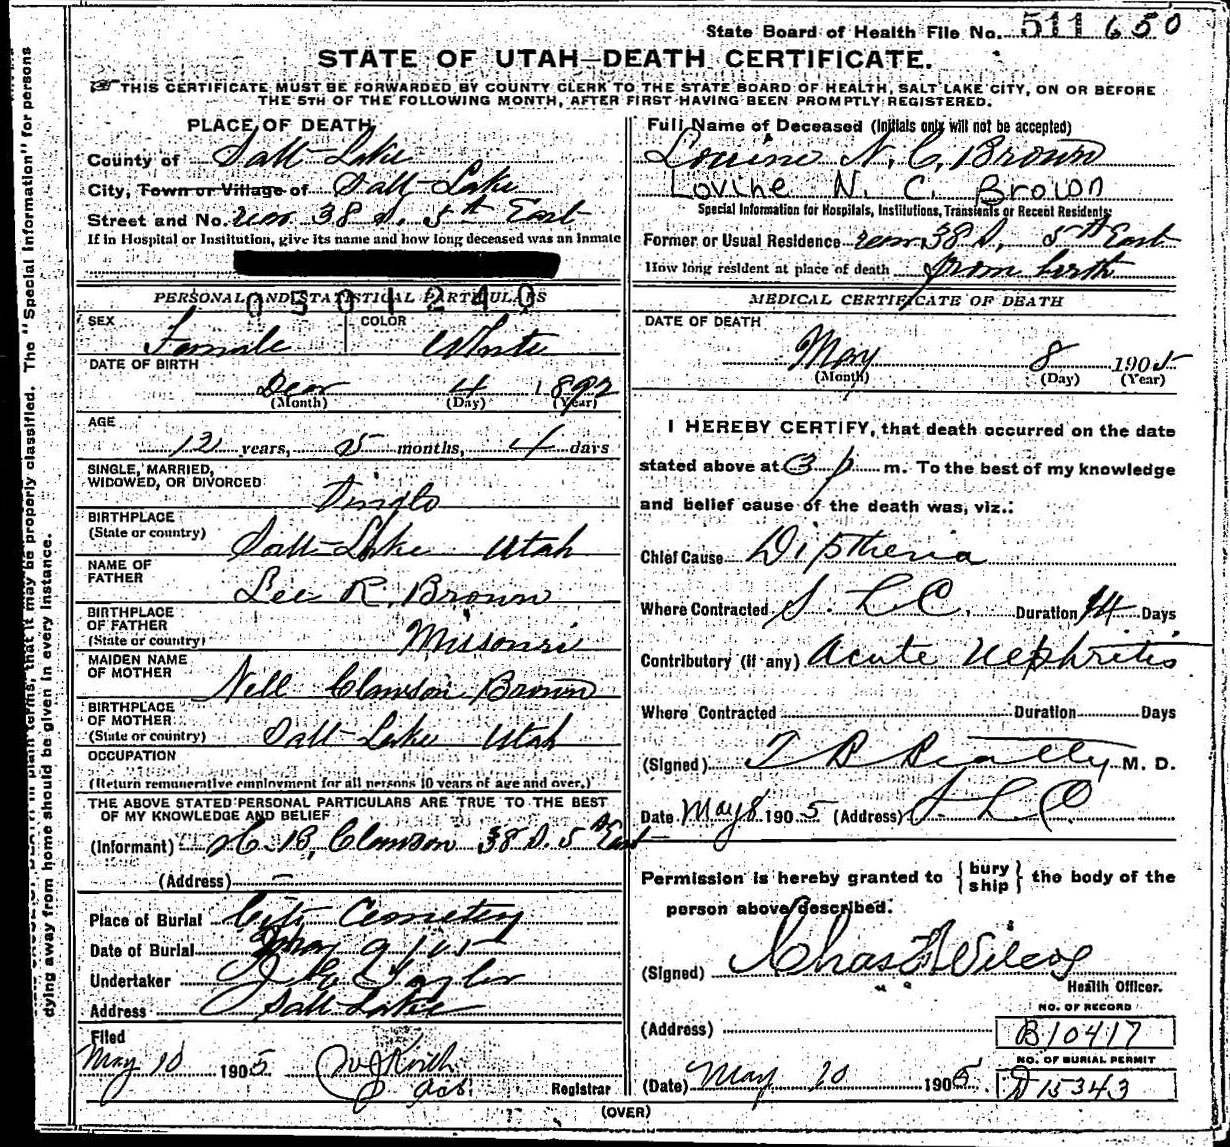 State Board of Health File No. 511650
STATE OF UTAH—DEATH CERTIFICATE.
THIS CERTIFICATE MUST BE FORWARDED BY COUNTY CLERK TO THE STATE BOARD OF HEALTH, SALT LAKE CITY, ON OR BEFORE
THE 5TH OF THE FOLLOWING MONTH, AFTER FIRST HAVING BEEN PROMPTLY REGISTERED.
PLACE OF DEATH
County of Salt Lake
City, Town or Village of Salt Lake
Street and No. rear 38 S. 5th East
If in Hospital or Institution, give its name and how long deceased was an inmate
PERSONAL AND STATISTICAL PARTICULARS
0501240
SEX Female COLOR White
DATE OF BIRTH
Decr 4 1892
(Month) (Day) (Year)
AGE
12 years, 5 months, 4 days
SINGLE, MARRIED,
WIDOWED, OR DIVORCED Single
BIRTHPLACE
(State or country) Salt Lake Utah
NAME OF
FATHER Lee R. Brown
BIRTHPLACE
OF FATHER
(State or country) Missouri
MAIDEN NAME
OF MOTHER Nell Clawson Brown
BIRTHPLACE
OF MOTHER
(State or country) Salt Lake Utah
OCCUPATION
(Return remunerative employment for all persons 10 years of age and over.)
THE ABOVE STATED PERSONAL PARTICULARS ARE TRUE TO THE BEST
OF MY KNOWLEDGE AND BELIEF
(Informant) H. B. Clawson 38 S. 5th East
(Address)
Place of Burial City Cemetery
Date of Burial May 9/05
Undertaker Taylor
Address Salt Lake
Filed
May 10 1905
Registrar
Full Name of Deceased (Initials only will not be accepted)
Lovine N. C. Brown
Lovine N. C. Brown
Special Information for Hospitals, Institutions, Transients or Recent Residents:
Former or Usual Residence rear 38 S. 5th East
How long resident at place of death from birth
MEDICAL CERTIFICATE OF DEATH
DATE OF DEATH
May 8 1905
(Month) (Day) (Year)
I HEREBY CERTIFY, that death occurred on the date
stated above at 3 p m. To the best of my knowledge
and belief cause of the death was, viz.:
Chief Cause Diptheria
Where Contracted S. L. C. Duration 14 Days
Contributory (if any) Acute Nephritis
Where Contracted Duration Days
(Signed) T B Beatty M. D.
Date May 8 1905 (Address) S. L. C.
Permission is hereby granted to {bury
ship} the body of the
person above described.
(Signed) Chas F Wilcox
Health Officer.
NO. OF RECORD
(Address) B10417
NO. OF BURIAL PERMIT
(Date) May 10 1905 D 15343
(OVER)
The "Special Information" for persons
in plain terms, that it may be properly classified.
dying away from home should be given in every instance.